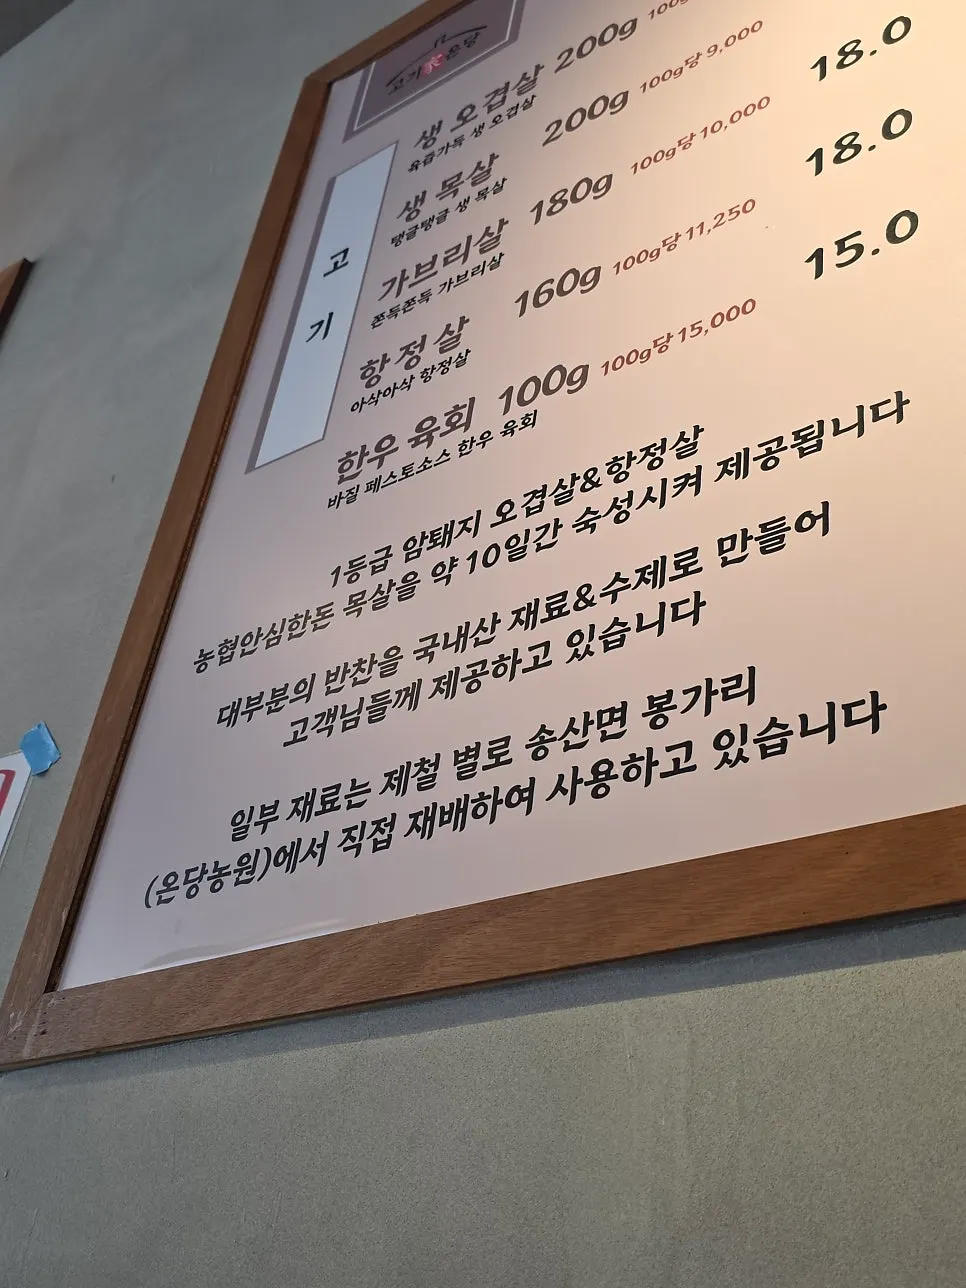 고기家온당
고기
생 오겹살 200g 100g
육즙가득 생 오겹살
생 목살 200g 100g당 9,000 18.0
탱글탱글 생 목살
가브리살 180g 100g당 10,000 18.0
쫀득쫀득 가브리살
항정살 160g 100g당 11,250
아삭아삭 항정살
한우 육회 100g 100g당 15,000 15.0
바질 페스토소스 한우 육회
1등급 암퇘지 오겹살&항정살
농협안심한돈 목살을 약 10일간 숙성시켜 제공됩니다
대부분의 반찬을 국내산 재료&수제로 만들어
고객님들께 제공하고 있습니다
일부 재료는 제철 별로 송산면 봉가리
(온당농원)에서 직접 재배하여 사용하고 있습니다